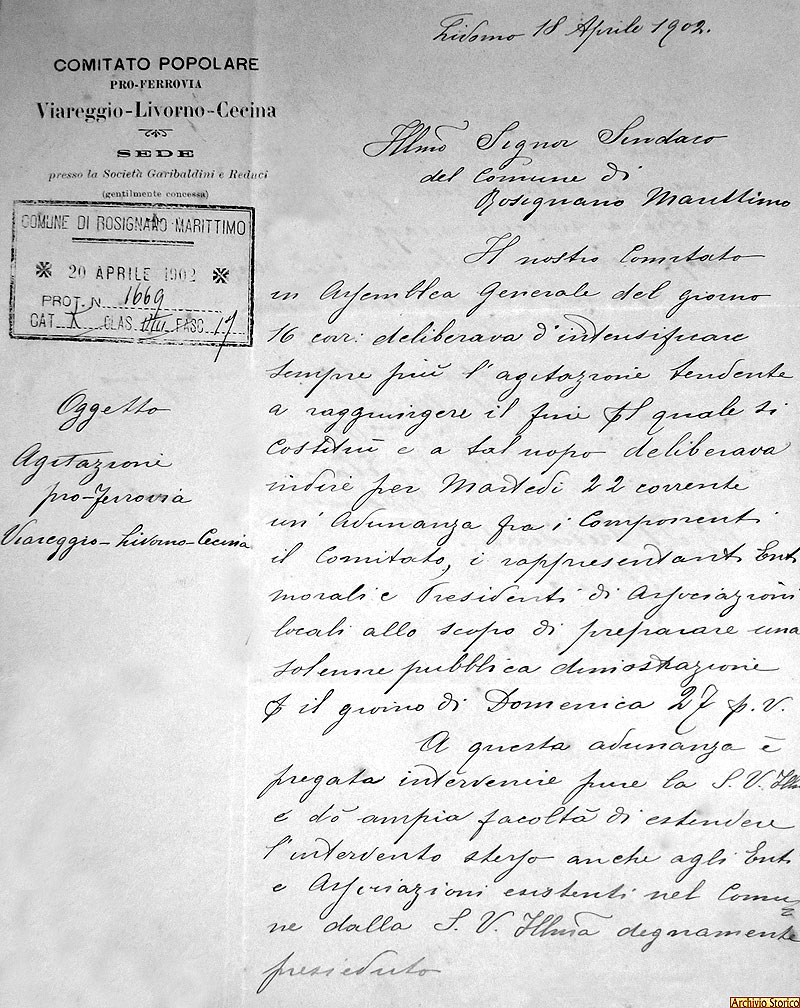 Livorno 18 Aprile 1902.
COMITATO POPOLARE
PRO-FERROVIA
Viareggio-Livorno-Cecina
SEDE
presso la Società Garibaldini e Reduci
(gentilmente concessa)
COMUNE DI ROSIGNANO MARITTIMO
20 APRILE 1902
PROT. N. 1669
CAT. X CLAS. VIII FASC. 17
Oggetto
Agitazione
pro-ferrovia
Viareggio-Livorno-Cecina
Illmo Signor Sindaco
del Comune di
Rosignano Marittimo
Il nostro Comitato
in Assemblea Generale del giorno
16 corr: deliberava d'intensificare
sempre più l'agitazione tendente
a raggiungere il fine pel quale si
costituì e a tal uopo deliberava
indire per Martedì 22 corrente
un' adunanza fra i Componenti
il Comitato, i rappresentanti Enti
morali e Presidenti di Associazioni
locali allo scopo di preparare una
solenne pubblica dimostrazione
p il giorno di Domenica 27 p.v.
A questa adunanza è
pregata intervenire pure la S. V. Illma
e dò ampia facoltà di estendere
l'intervento stesso anche agli Enti
e Associazioni esistenti nel Comu=
ne dalla S. V. Illma degnamente
presieduto
Archivio Storico